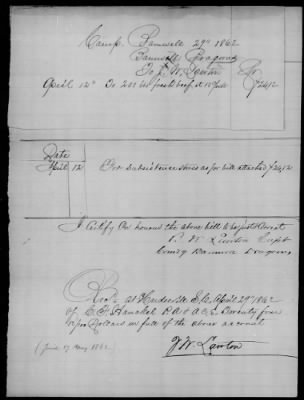 Camp Barnwell 29th 1862
Barnwell Dragoons
To J. W. Lawton Dr
April 12th To 201 lbs fresh beef at 12 $24.12
Date
April 12 For subsistence stores as per bill attached $24.12
I Certify On honour the above bill to be just & Correct
J. W. Lawton Capt
Comdg Barnwell Dragoons
Recd at Hardeeville S.C. April 29th 1862
of C. F. Hanckel P.A of A.C.S. Twenty four
12/100 Dollars in full of the above account
J W. Lawton
1862